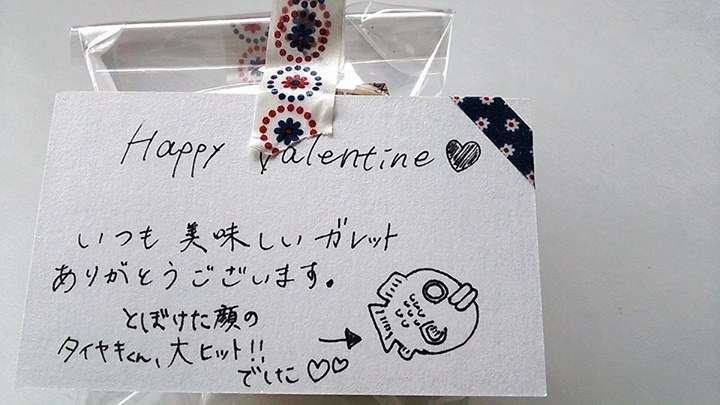 Happy Valentine
いつも 美味しい ガレット
ありがとうございます。
とぼけた顔の
タイヤキくん、大ヒット!!
でした♡♡